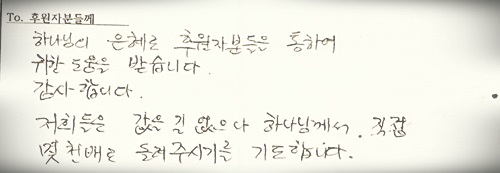 To. 후원자분들께
하나님의 은혜로 후원자분들을 통하여
귀한 도움을 받습니다.
감사합니다.
저희들은 갚을 길 없으나 하나님께서. 직접
몇 천배로 돌려주시기를 기도합니다.